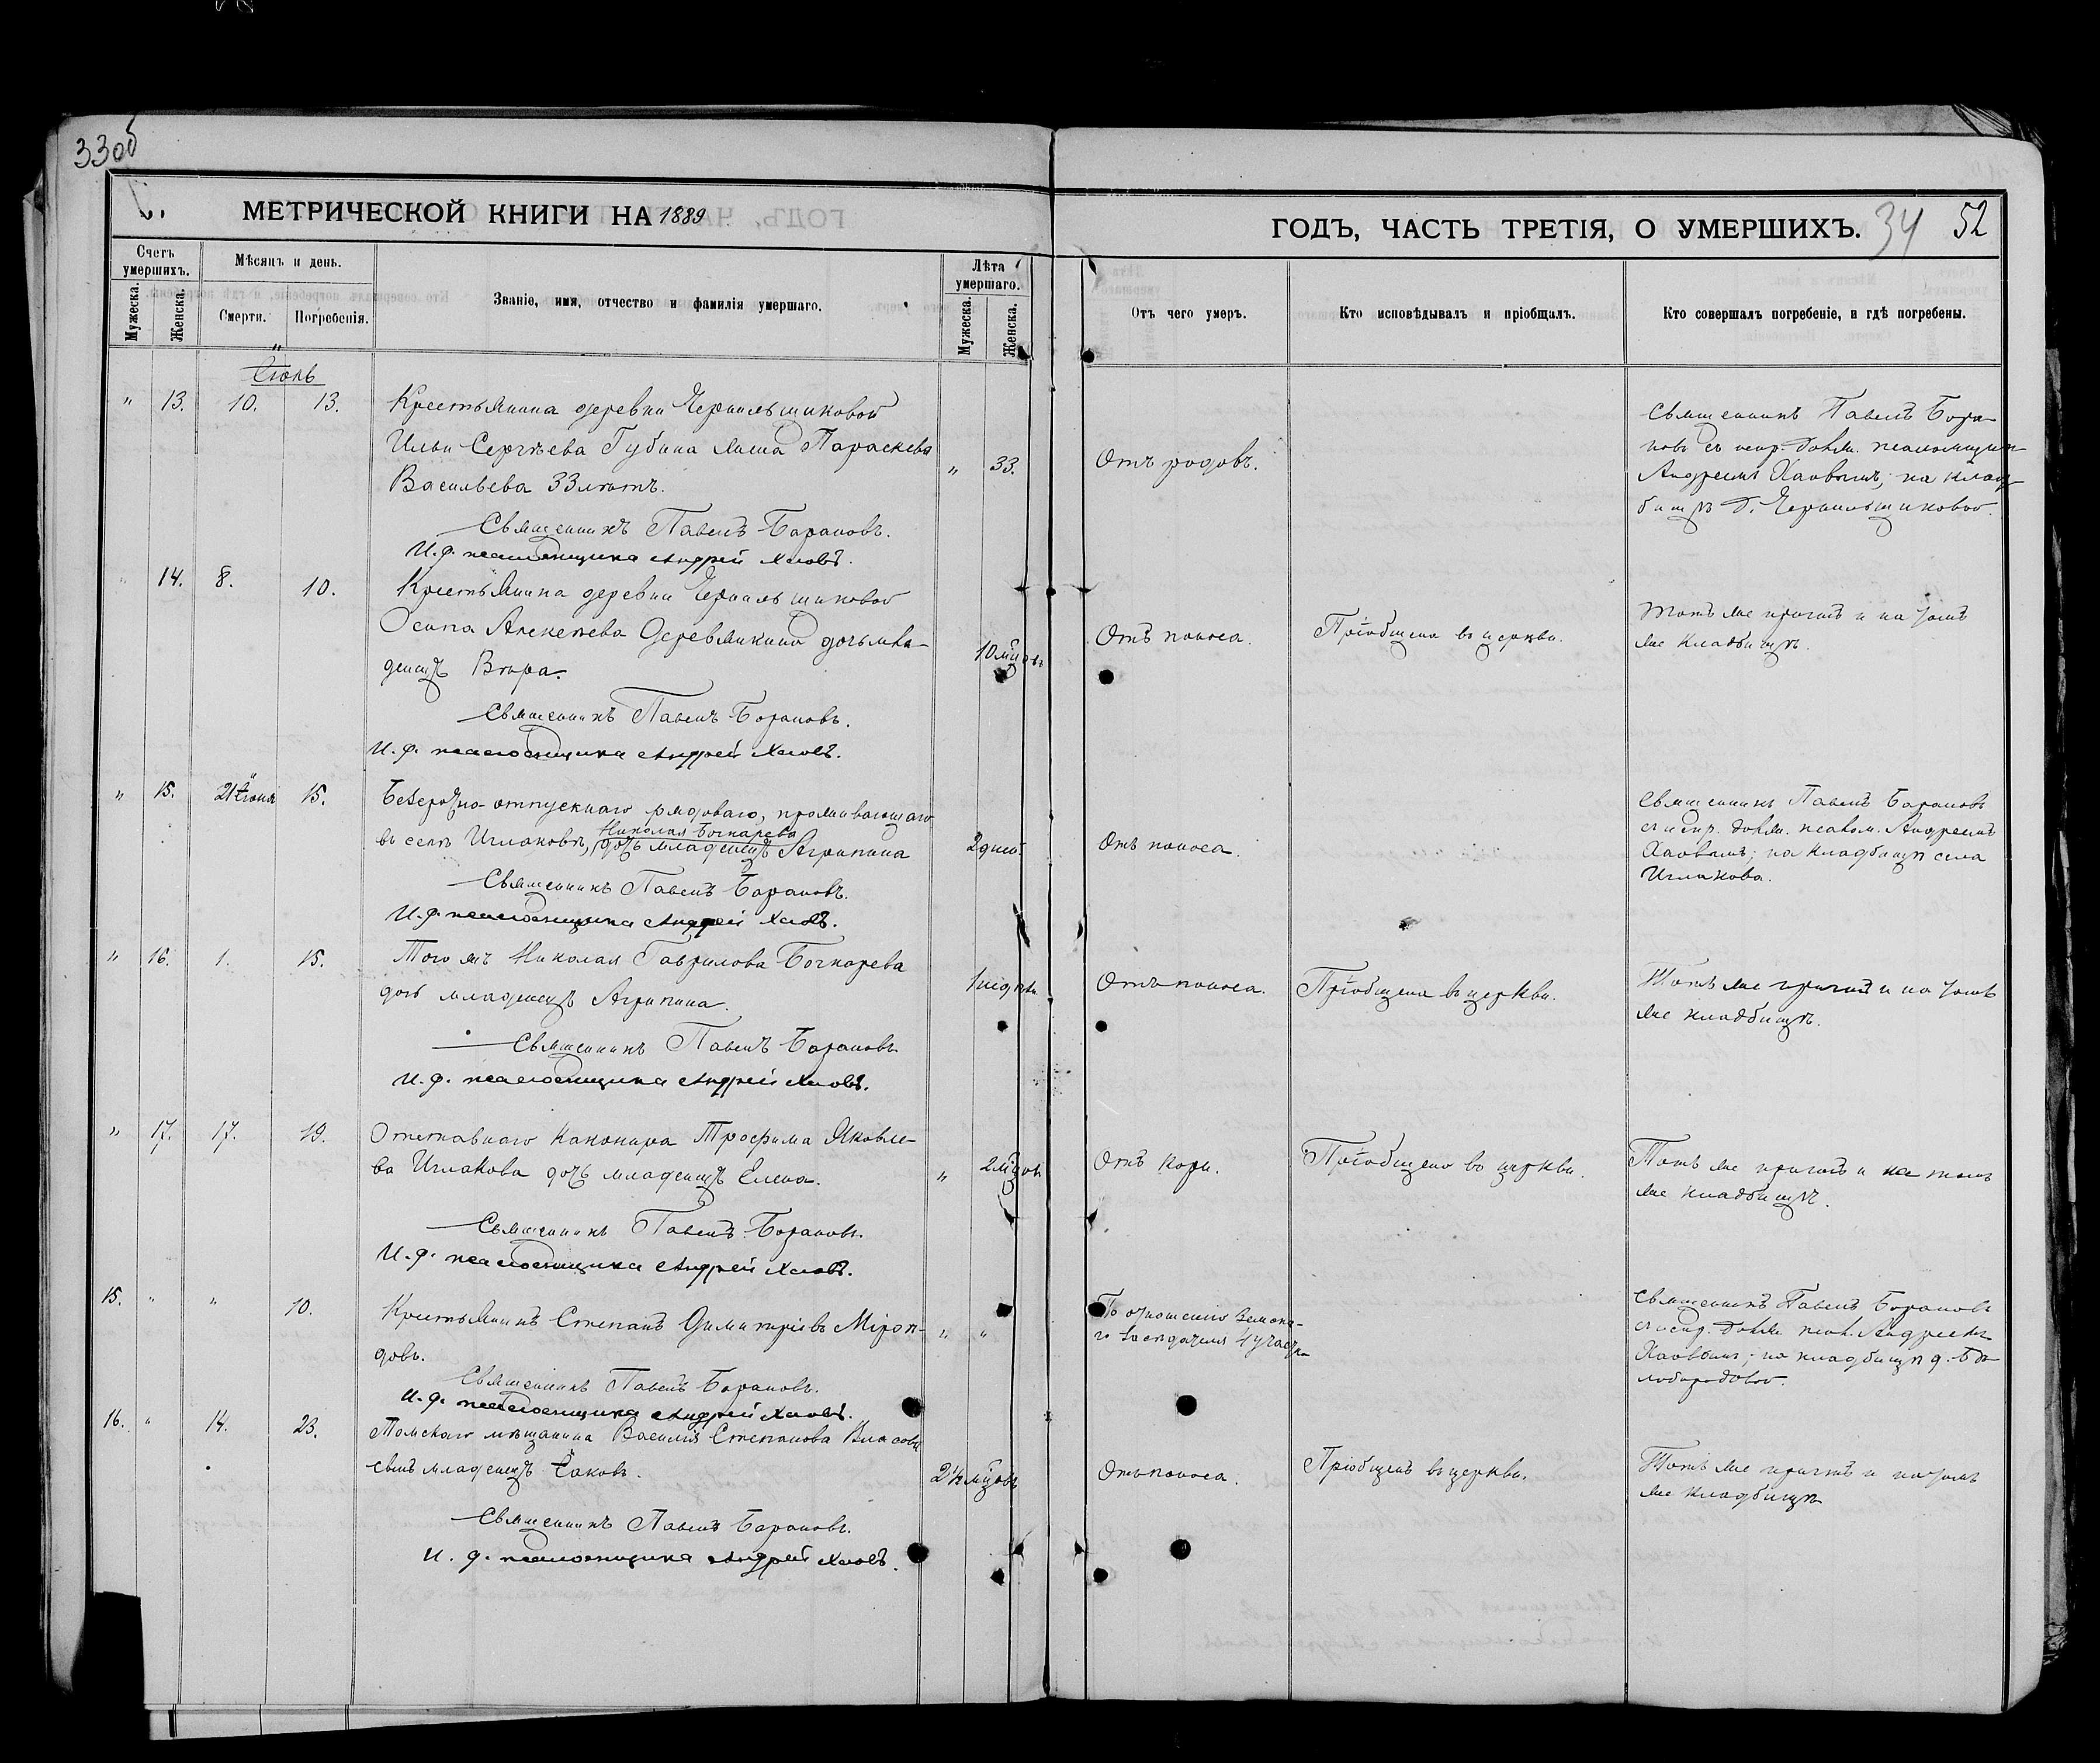 33об
МЕТРИЧЕСКОЙ КНИГИ НА 1889
ГОДЪ, ЧАСТЬ ТРЕТІЯ, О УМЕРШИХЪ. 34 52
Счетъ умершихъ.
Мужеска.
Женска.
Мѣсяцъ и день.
Смерти.
Погребенія.
Званіе, имя, отчество и фамилія умершаго.
Лѣта умершаго.
Мужеска.
Женска.
Отъ чего умеръ.
Кто исповѣдывалъ и пріобщалъ.
Кто совершалъ погребеніе, и гдѣ погребены.
Іюль
" 13. 10. 13.
Крестьянина деревни Чернильщиковой
Ильи Сергѣева Губина жена Параскева
Васильева 33 лѣтъ.
" 33.
Отъ родовъ.
Священникъ Павелъ Бара-
новъ съ испр. долж. псаломщика
Андреемъ Хаовымъ; на клад-
бищѣ д. Чернильщиковой.
Священникъ Павелъ Барановъ.
И. д. псаломщика Андрей Хаовъ.
" 14. 8. 10.
Крестьянина деревни Чернильщиковой
Осипа Алексѣева Деревянкина дочь мла-
денецъ Вѣра.
10 м-цовъ
Отъ поноса.
Пріобщена въ церкви.
Тотъ же причтъ и на томъ
же кладбищѣ.
Священникъ Павелъ Барановъ.
И. д. псаломщика Андрей Хаовъ.
" 15. 21 Іюня 15.
Безсрочно-отпускнаго рядоваго, проживающаго
въ селѣ Иглаковѣ, Николая Бочкарева дочь младенецъ Агрипина
2 дней.
Отъ поноса.
Священникъ Павелъ Барановъ
съ испр. долж. псалом. Андреемъ
Хаовымъ; на кладбищѣ села
Иглакова.
Священникъ Павелъ Барановъ.
И. д. псаломщика Андрей Хаовъ.
" 16. 1. 15.
Того жъ Николая Гаврилова Бочкарева
дочь младенецъ Агрипина.
1 недѣли
Отъ поноса.
Пріобщена въ церкви.
Тотъ же причтъ и на томъ
же кладбищѣ.
Священникъ Павелъ Барановъ
И. д. псаломщика Андрей Хаовъ.
" 17. 17. 19.
Отставнаго канонира Трофима Яковле-
ва Иглакова дочь младенецъ Елена.
" 2 м-цовъ
Отъ кори.
Пріобщена въ церкви.
Тотъ же причтъ и на томъ
же кладбищѣ.
Священникъ Павелъ Барановъ.
И. д. псаломщика Андрей Хаовъ.
15. " " 10.
Крестьянинъ Степанъ Димитріевъ Мірон-
довъ.
" "
По отношенію Земска-
го Засѣдателя 4 участка
Священникъ Павелъ Барановъ
съ испр. долж. псал. Андреемъ
Хаовымъ; на кладбищѣ д. Бѣ-
лобородовой.
Священникъ Павелъ Барановъ.
И. д. псаломщика Андрей Хаовъ.
16. " 14. 23.
Томскаго мѣщанина Василія Степанова Власова
сынъ младенецъ Іаковъ.
2 1/2 м-цовъ
Отъ поноса.
Пріобщенъ въ церкви.
Тотъ же причтъ и на томъ
же кладбищѣ
Священникъ Павелъ Барановъ.
И. д. псаломщика Андрей Хаовъ.